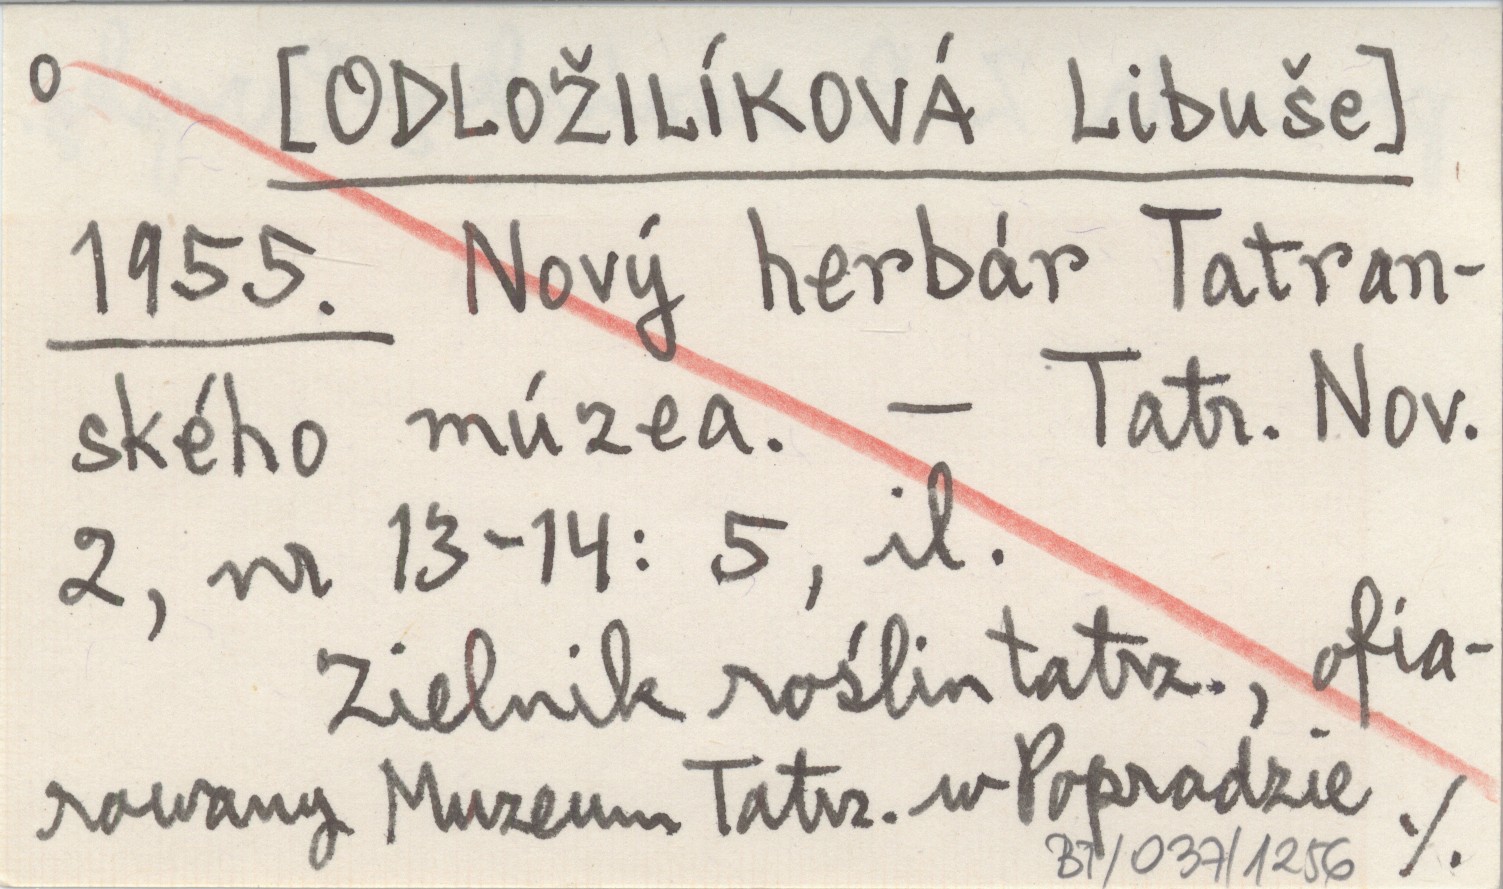 o [ODLOŽILÍKOVÁ Libuše]
1955. Nový herbár Tatran-
ského múzea. — Tatr. Nov.
2, nr 13-14: 5, il.
Zielnik roślin tatrz., ofia-
rowany Muzeum Tatrz. w Popradzie ./.
BT/037/1256